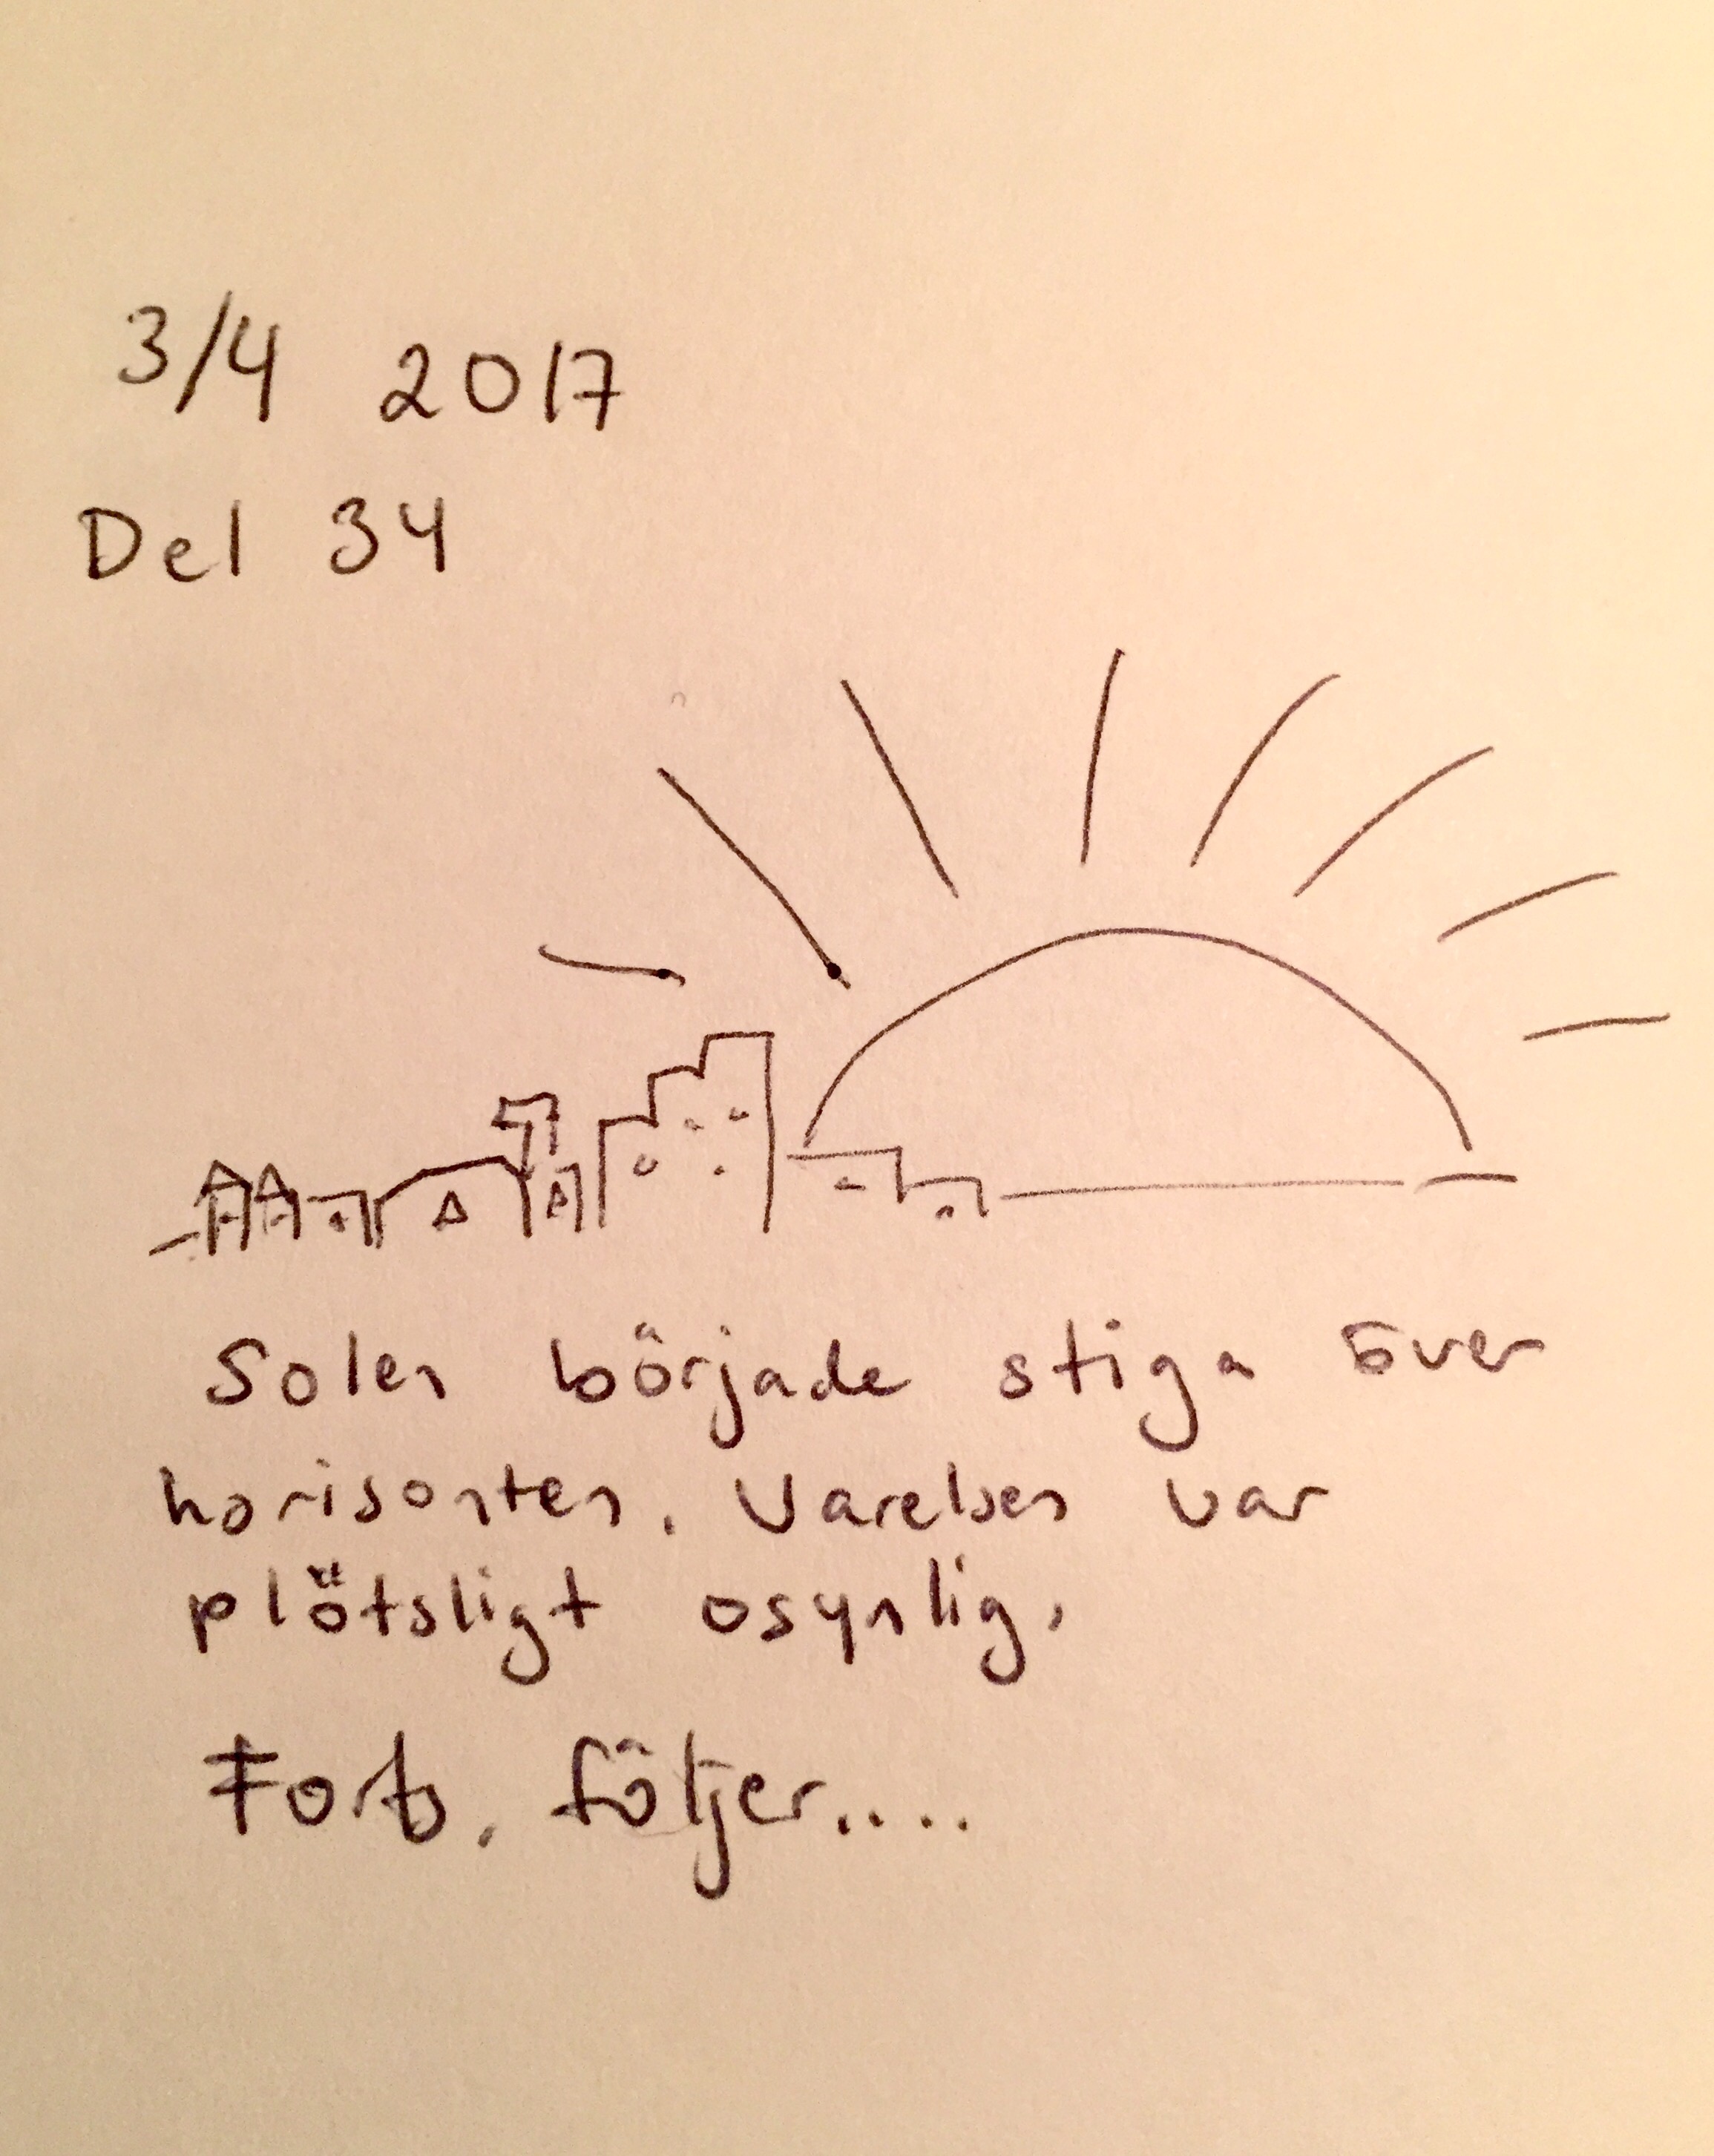 3/4 2017
Del 34
Solen började stiga över
horisonten. Varelsen var
plötsligt osynlig.
Forts. följer....